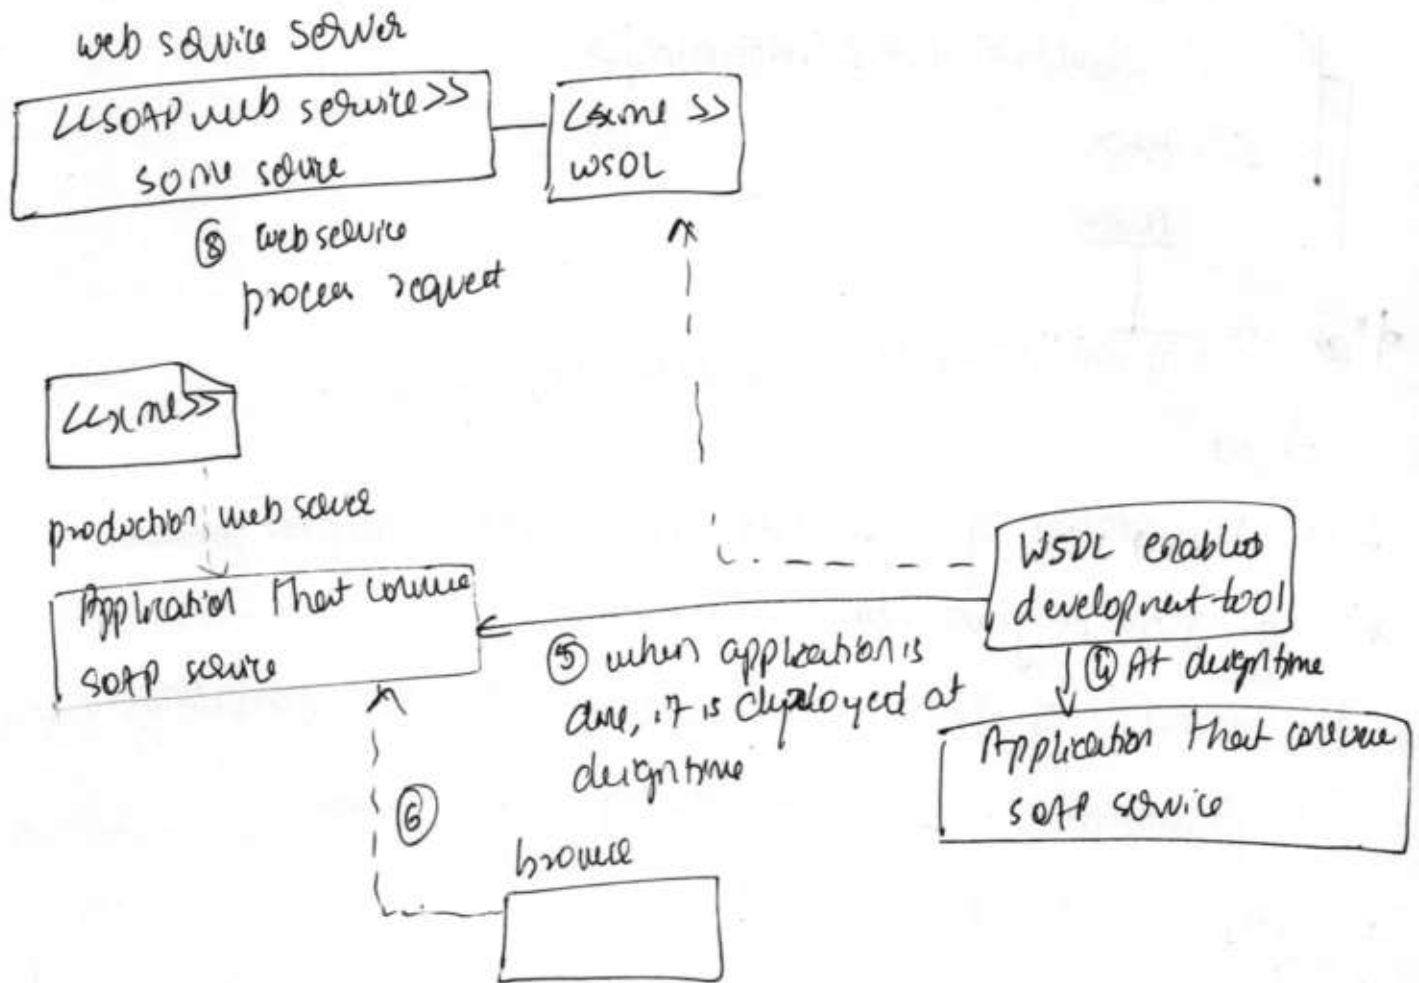 web service server
<<SOAP web service>>
some service
<<xml>>
WSDL
⑧ web service
process request
<<xml>>
production web server
Application that consume
SOAP service
WSDL enabled
development tool
⑤ when application is
done, it is deployed at
design time
④ At design time
Application that consume
SOAP service
⑥
browse